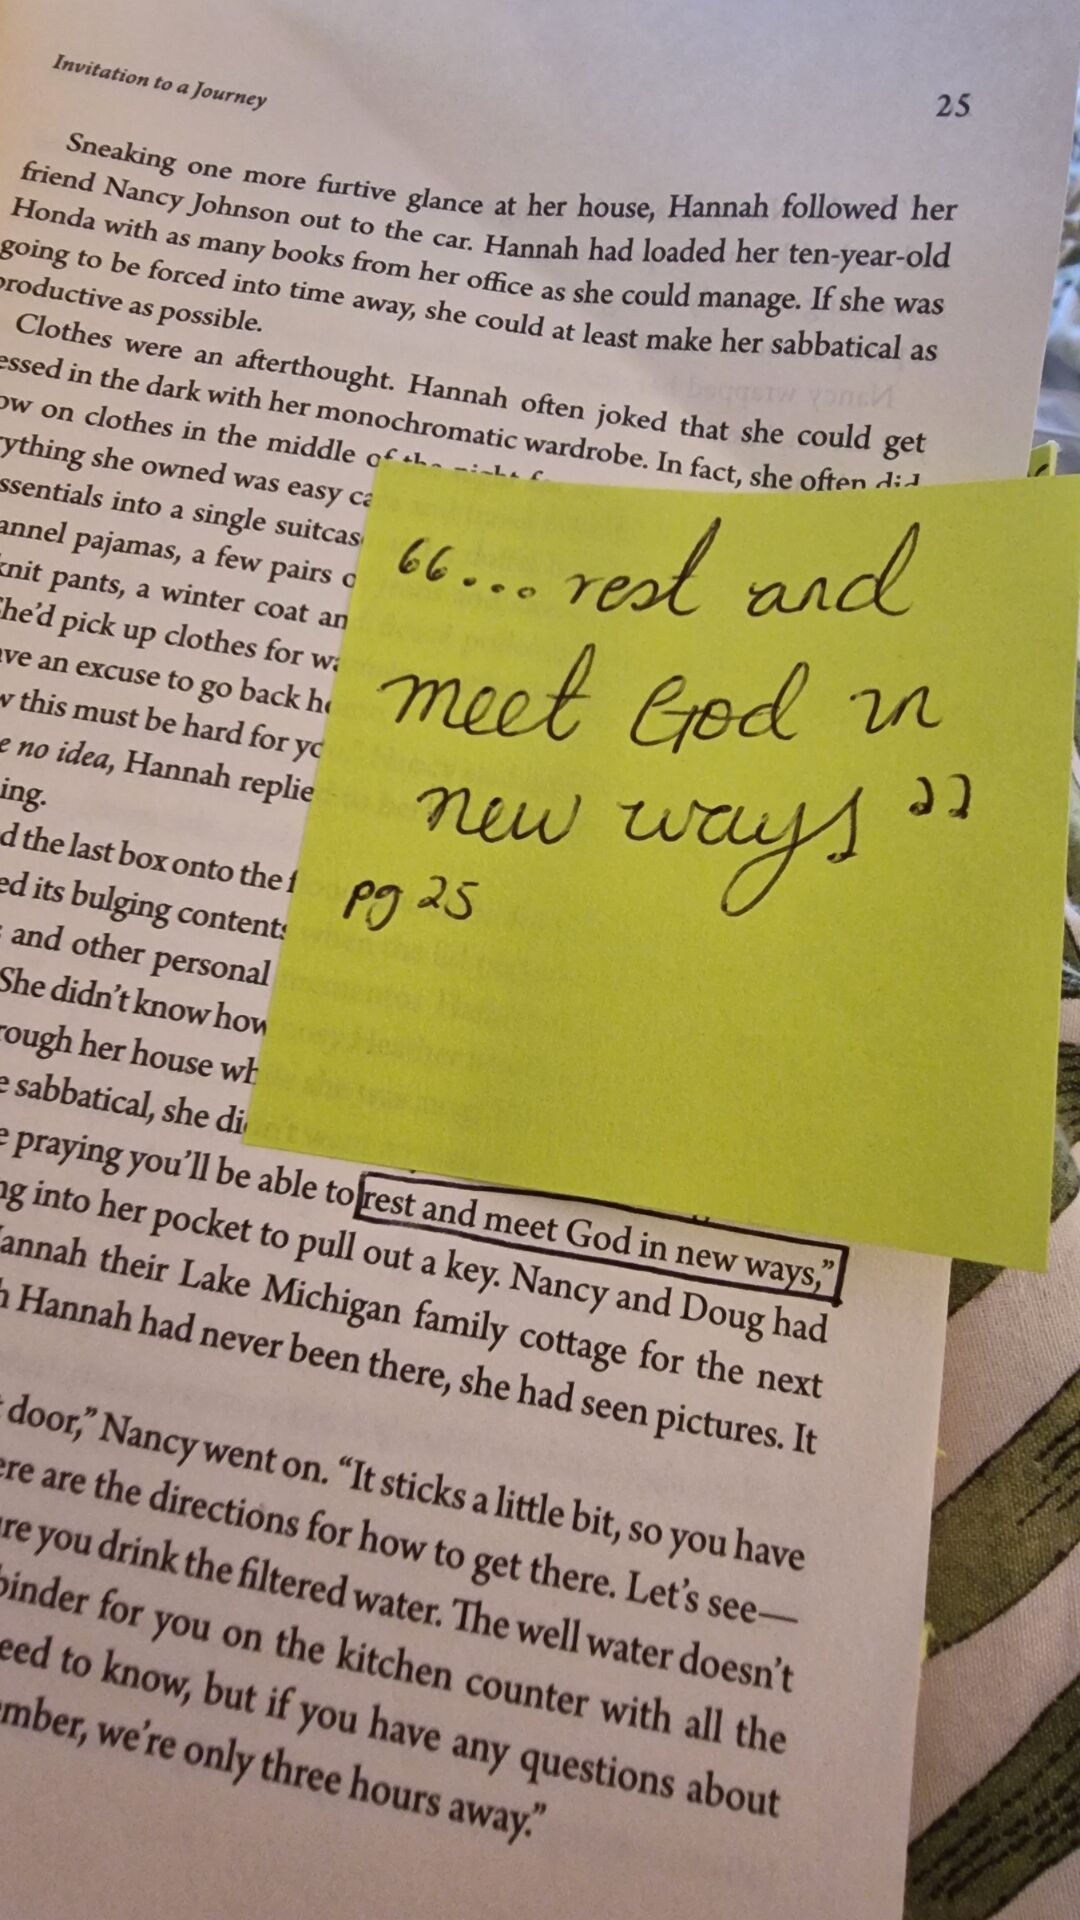 Invitation to a Journey
25
Sneaking one more furtive glance at her house, Hannah followed her
friend Nancy Johnson out to the car. Hannah had loaded her ten-year-old
Honda with as many books from her office as she could manage. If she was
going to be forced into time away, she could at least make her sabbatical as
productive as possible.
Clothes were an afterthought. Hannah often joked that she could get
essed in the dark with her monochromatic wardrobe. In fact, she often did
ow on clothes in the middle of the night
rything she owned was easy ca
ssentials into a single suitcas
annel pajamas, a few pairs o
knit pants, a winter coat an
he'd pick up clothes for wa
ave an excuse to go back h
w this must be hard for yo
e no idea, Hannah replie
ing.
d the last box onto the f
ed its bulging contents
s and other personal
She didn't know how
rough her house wh
e sabbatical, she di
e praying you'll be able to rest and meet God in new ways,"
ng into her pocket to pull out a key. Nancy and Doug had
annah their Lake Michigan family cottage for the next
h Hannah had never been there, she had seen pictures. It
t door," Nancy went on. "It sticks a little bit, so you have
ere are the directions for how to get there. Let's see—
ure you drink the filtered water. The well water doesn't
binder for you on the kitchen counter with all the
eed to know, but if you have any questions about
mber, we're only three hours away."
"... rest and
meet God in
new ways"
pg 25